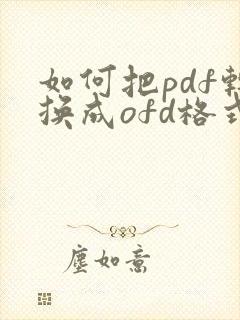 如何把pdf转
换成ofd格式
尘如意